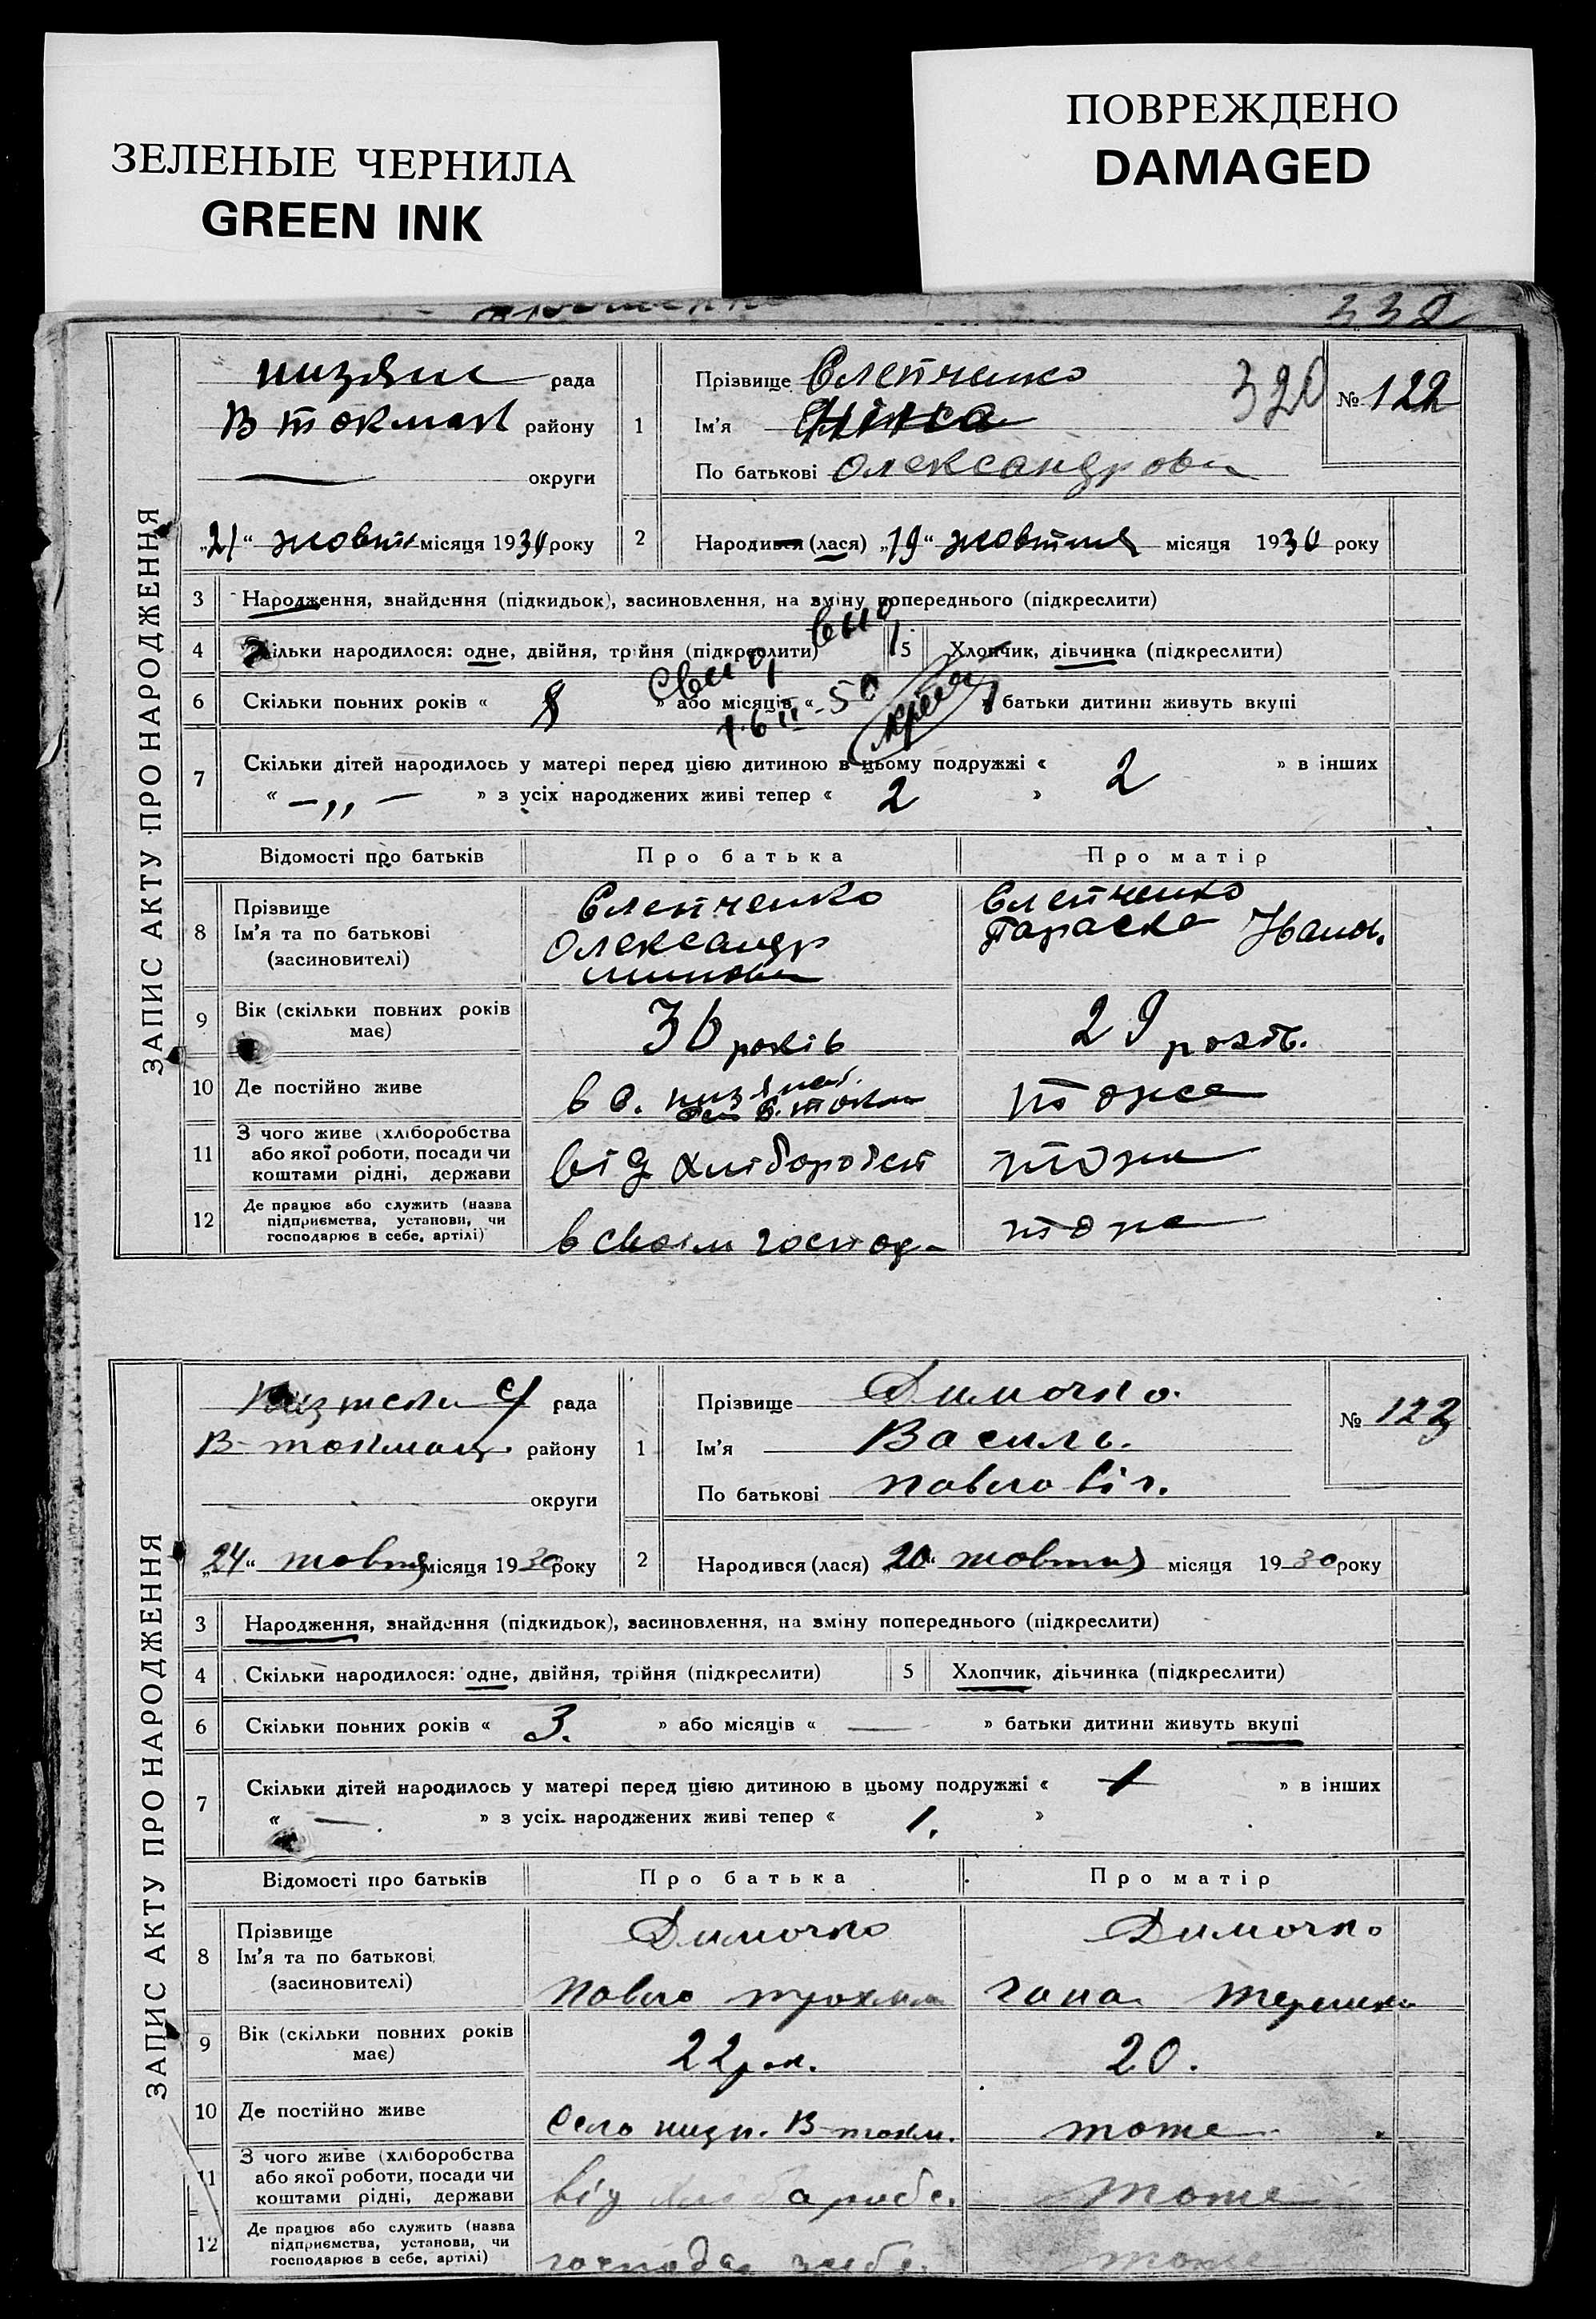 ЗЕЛЕНЫЕ ЧЕРНИЛА
GREEN INK
ПОВРЕЖДЕНО
DAMAGED
332
ЗАПИС АКТУ ПРО НАРОДЖЕННЯ
низяни рада
В токмак району
округи
„21“ жовтн місяця 1930 року
1
Прізвище Слепченко
Ім'я Нінка
По батькові Олександрови
320
№ 122
2
Народився (лася) „19“ жовтня місяця 1930 року
3 Народження, знайдення (підкидьок), засиновлення, на зміну попереднього (підкреслити)
4 Скільки народилося: одне, двійня, трійня (підкреслити)
5 Хлопчик, дівчинка (підкреслити)
6 Скільки повних років « 8 » або місяців « » батьки дитини живуть вкупі
7 Скільки дітей народилось у матері перед цією дитиною в цьому подружжі « 2 » в інших
« —„— » з усіх народжених живі тепер « 2 »
Відомості про батьків Про батька Про матір
8 Прізвище
Ім'я та по батькові
(засновителі)
Слепченко
Олександр
Слепченко
Параска Іванов.
9 Вік (скільки повних років
має)
36 років
29 років.
10 Де постійно живе
в с. низяни
тоже
11 З чого живе (хліборобства
або якої роботи, посади чи
коштами рідні, держави
від хліборобст
тоже
12 Де працює або служить (назва
підприємства, установи, чи
господарює в себе, артілі)
в своїм господ
тоже
ЗАПИС АКТУ ПРО НАРОДЖЕННЯ
с/ рада
В-токмац. району
округи
„24“ жовтня місяця 1930 року
1
Прізвище Димочко.
Ім'я Василь.
По батькові Павловіч.
№ 123
2
Народився (лася) „20“ жовтня місяця 1930 року
3 Народження, знайдення (підкидьок), засиновлення, на зміну попереднього (підкреслити)
4 Скільки народилося: одне, двійня, трійня (підкреслити)
5 Хлопчик, дівчинка (підкреслити)
6 Скільки повних років « 3. » або місяців « — » батьки дитини живуть вкупі
7 Скільки дітей народилось у матері перед цією дитиною в цьому подружжі « 1 » в інших
« — » з усіх народжених живі тепер « 1. »
Відомості про батьків Про батька Про матір
8 Прізвище
Ім'я та по батькові
(засиновителі)
Димочко
Павло трохим
Димочко
гана терешки
9 Вік (скільки повних років
має)
22 рок.
20.
10 Де постійно живе
Село низн. В-токм.
тоже
11 З чого живе (хліборобства
або якої роботи, посади чи
коштами рідні, держави
від хлібаробс.
тоже
12 Де працює або служить (назва
підприємства, установи, чи
господарює в себе, артілі)
господа
тоже